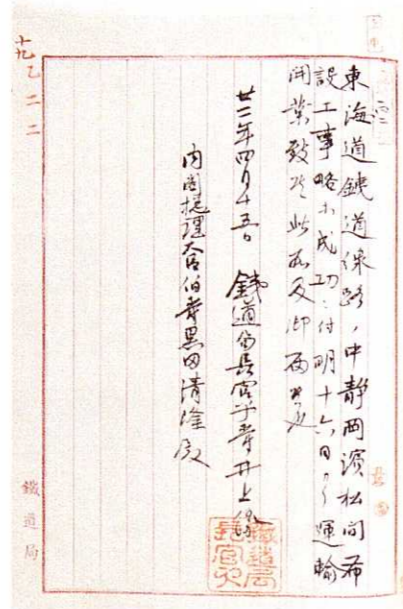 東海道鉄道線路ノ中静岡濱松間布
設工事略ホ成功ニ付明十六日ヨリ運輸
開業致候此段及御届候也
廿二年四月十五日 鉄道局長官子爵井上勝
内閣総理大臣伯爵黒田清隆殿
十九乙二二
鐵道局
鐵道局長官之印